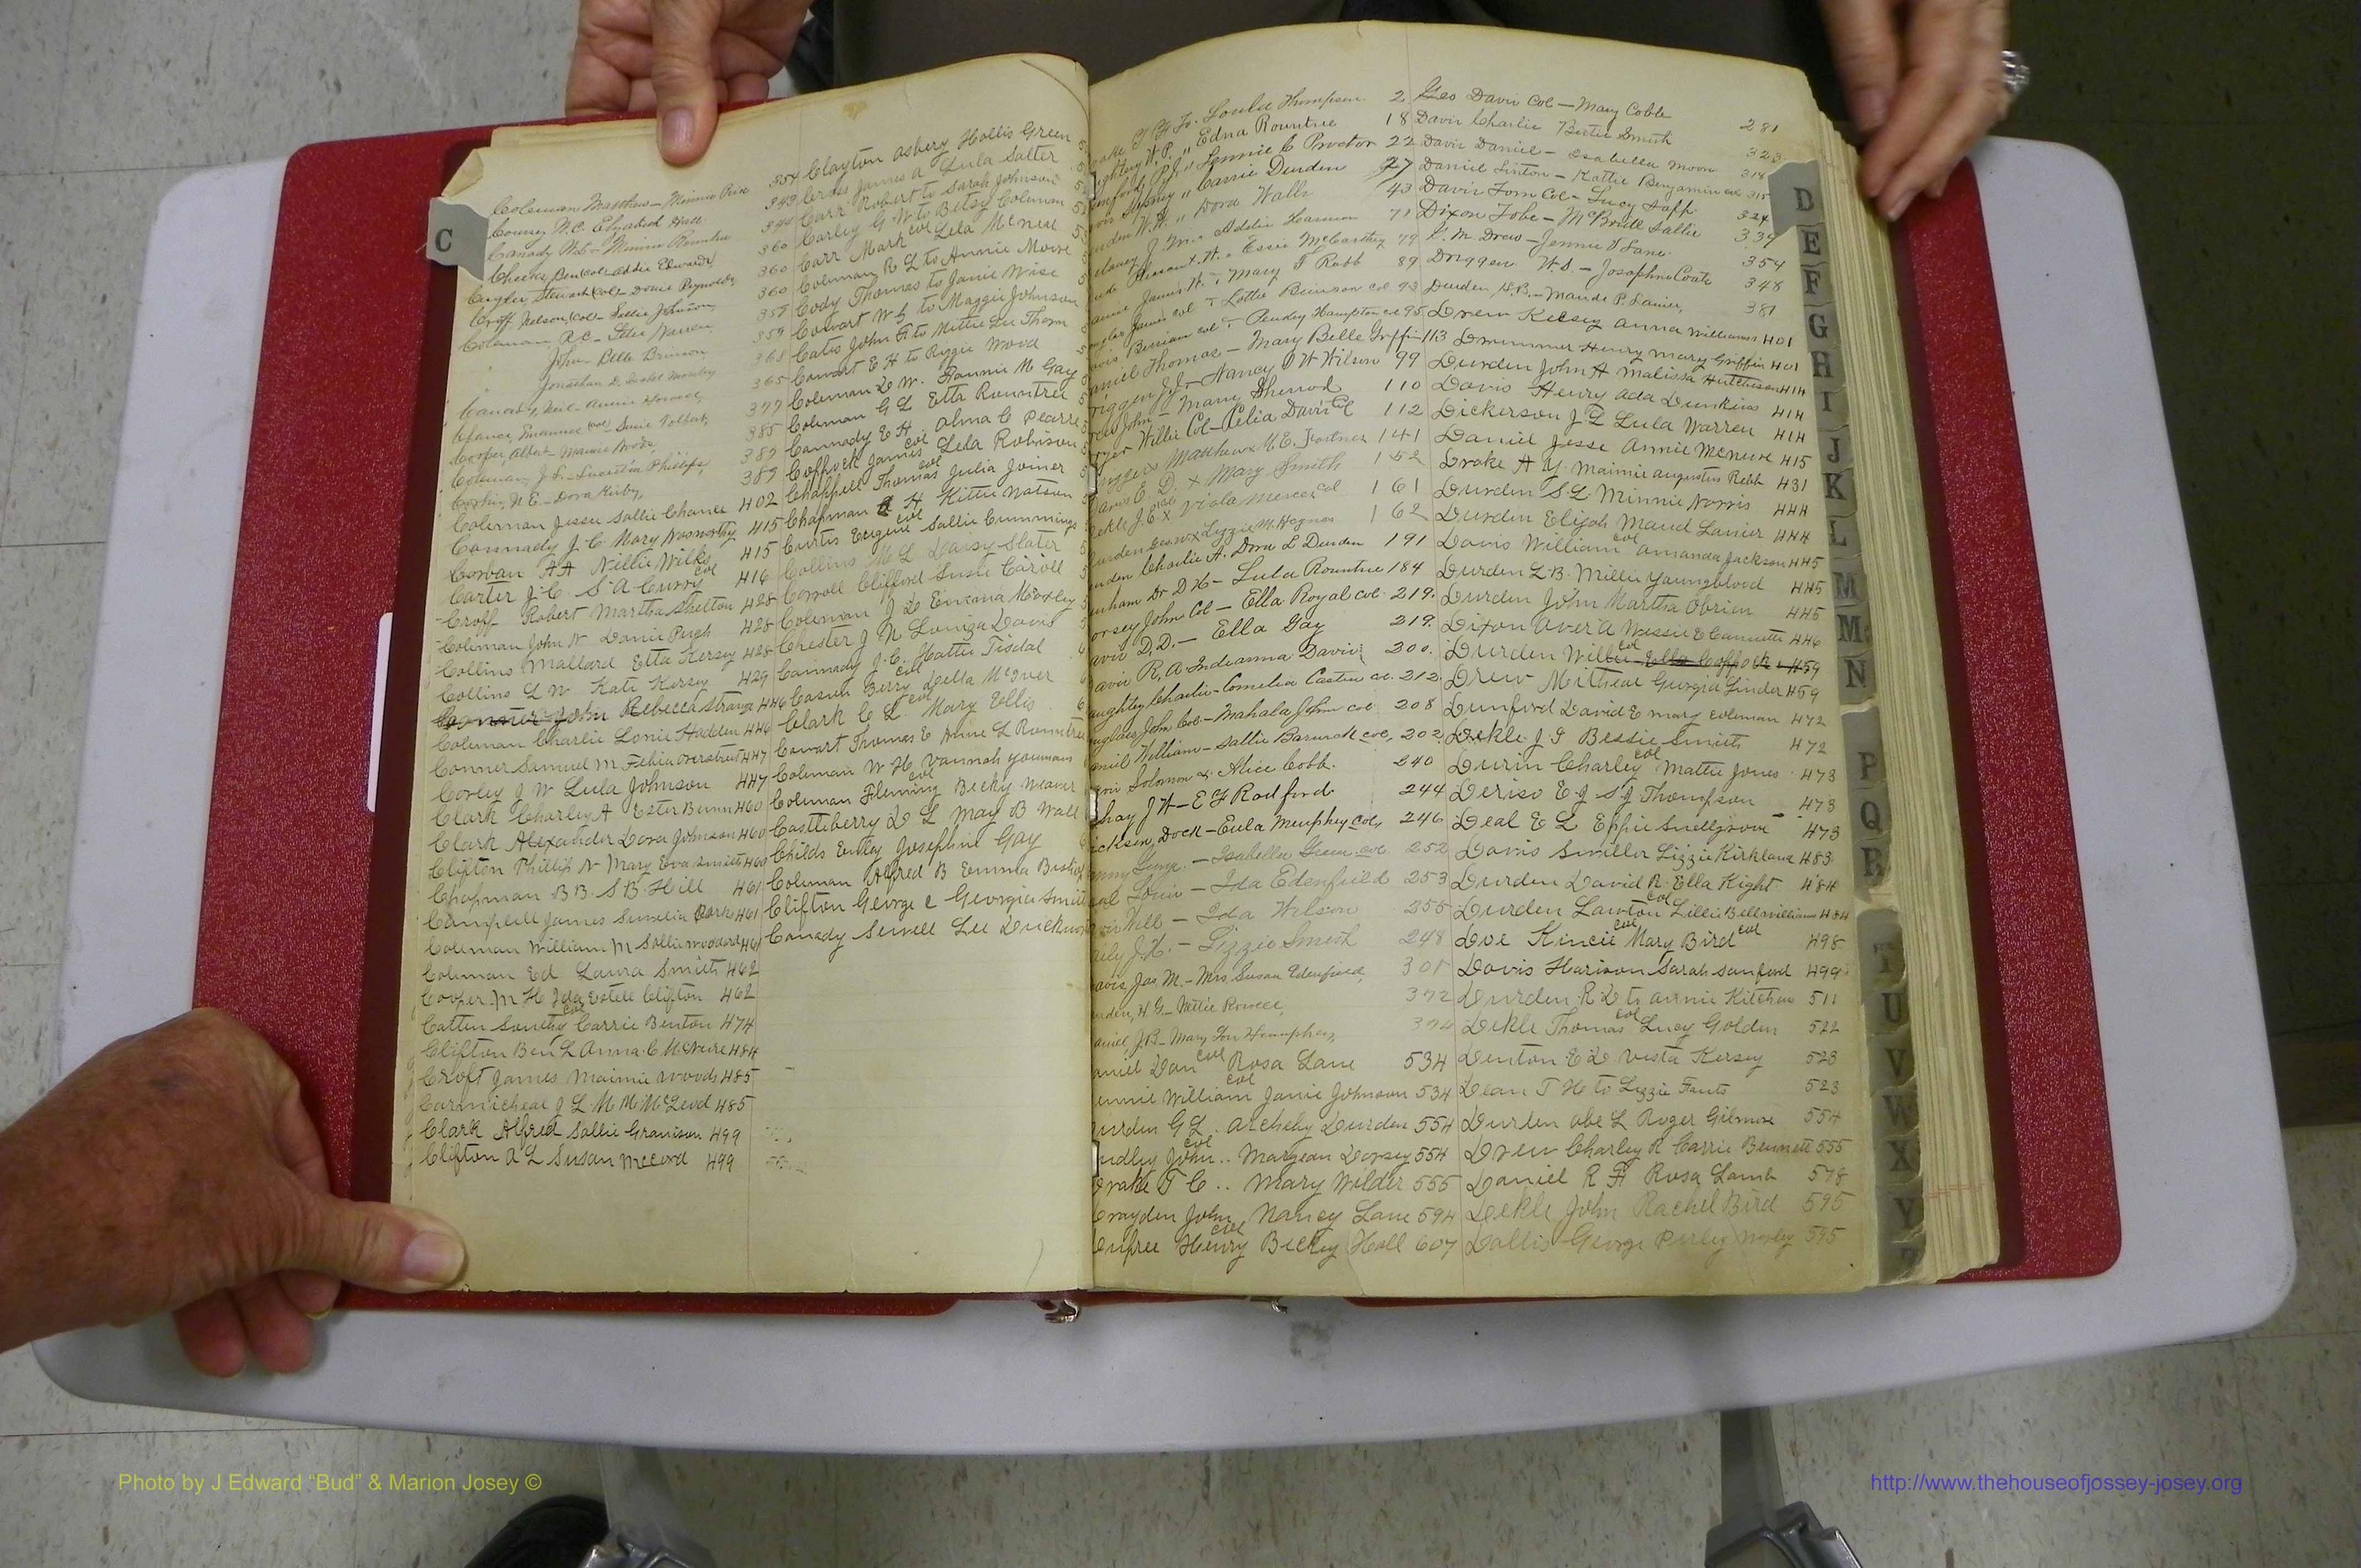 C
Coleman Matthew - Minnie Price 354
Conner, W.C. Elizabeth Hall 343
Canady W.L. - Minnie Rountree 344
Cheeks Ben (Col) - Addie Edwards 360
Cuyler, Stewart (Col) - Dosie Reynolds 360
Croff Nelson (Col) - Sallie Johnson 360
Coleman, R.C. - Warren 357
" John, Belle Brinson 359
" Jonathan D, Isabel Moxley 368
Canady, Neil - Annie 365
Chance, Emanuel (Col) Susie Tolbert 377
Cooper, Albert Mamie Woods 385
Coleman J.S. - Lucretia Phillips 389
N.E. - Dora Kirby, 389
Coleman Jesse Sallie Chance 402
Connady J. C. Mary Norsworthy 415
Cowan A A Nellie Wilks 415
Carter J. C. S A Curry col 416
Croff Robert Martha Shelton 428
Coleman John N Danie Pugh 428
Collins Mallard Etta Kersey 428
Collins L W Kate Kersey 429
Conner John Rebecca Strange 446
Coleman Charlie Lonie Hadden 446
Conner Samuel M Felicia Overstreet 447
Corley J W Lula Johnson 447
Clark Charley A Ester Bunn 460
Clark Alexander Dora Johnson 460
Clifton Phillip N Mary Eva Smith 460
Chapman B B. S B. Hill 461
Campbell James Amelia Parks 461
Coleman William M Sallie Woddard 461
Coleman Ed Laura Smith 462
Cooper M H Ida Estell Clifton 462
Catten Southy col Carrie Benton 474
Clifton Ben L Anna C McNeire 484
Croft James Maimie Woods 485
Carmicheal J L M M McLeod 485
Clark Alfred Sallie Granison 499
Clifton A L Susan McCord 499
Clayton Asbery Hollis Green
James A Lula Salter
Carr Robert to Sarah Johnson
Carley G W to Betsy Coleman
Carr Mark col Lela McNeal
Coleman R L to Annie Moore
Cody Thomas to Janie Wise
Cowart W G to Maggie Johnson
Cates John R to Mittie Lee Thorn
Cowart E H to Riggie Wood
Coleman D W. Fannie M Gay
Coleman G L Etta Rountree
Cannady E H. Alma C Pearre
Coppock James col Lela Robinson
Chappell Thomas col Julia Joiner
Chapman H Kittie Watson
Curtis Eugene col Sallie Cummings
Collins M L Daisy Slater
Carroll Clifford Susie Carroll
Coleman J D Emma Moxley
Chester J N Louiza Davis
Cannady J. C. Hattie Tisdal
Cason Berry col Della McIver
Clark C L col Mary Ellis
Cowart Thomas E Anne L Rountree
Coleman W H. Vannah Youmans
Coleman Fleming col Becky Weaver
Castleberry D L May B Wall
Childs Josephine Gay
Coleman Alfred B Emma Bishop
Clifton George C Georgia Smith
Canady Sewell Lee Duckworth
Lonla Thompson 2
W.P. " Edna Rountree 18
P.J. " Fannie C Proctor 22
Sidney " Carrie Durden 27
W.H. " Dora Walls 43
J. M. " Addie 71
Pleasant H. " Essie McCarthy 79
James H. " Mary T Robb 89
James col " Lottie Brinson col 93
col - Pendey Hampton col 95
Thomas - Mary Belle Griffin 113
J.J. - Nancy O W Wilson 99
John - Mary Sherrod 110
Willie Col - Celia Davis Col 112
Matthew x M.E. Fortner 141
E. D. x Mary Smith 152
J.C. col x Viola Mercer col 161
Geo W x Lizzie M. Hagnes 162
Charlie A. Dora L Durden 191
Dr D H - Lula Rountree 184
John Col - Ella Royal col. 219.
D.D. - Ella Gay 219.
R, A Indeanna Davis 200.
Charlie - Cornelia Casten co. 212.
John Col - Mahala John col 208
William - Sallie Barwick col, 202.
Solomon x Alice Cobb. 240
J H - E F Radford 244
Dock - Eula Murphey col, 246
George. - Isabella Green col 252
Louis - Ida Edenfield 253
Will - Ida Wilson 255
J.H. - Lizzie Smith 248
Jas M. - Mrs. Susan Edenfield, 301
H G. - Hattie Powell, 372
J.B. - Mary Lou Humphrey, 374
Dan col Rosa Lane 534
William col Janie Johnson 534
G L. Archeby Durden 554
John col .. Margean Dorsey 554
Drake T C .. Mary Wilder 555
John Nancy Lane 594
Henry col Becky Hall 607
Geo Davis Col - Mary Coble 281
Davis Charlie Bertie Smith 323
Davis Daniel - Esabella Moon 314
Daniel Linton - Hattie Benjamin col 315
Davis Tom Col - Lucy Sapp 324
Dixon Tobe - McBride Sallie 339
S. M. Drew - Jennie V Lane. 354
Driggers W.S. - Josephine Coats 348
Durden, H.B. - Maude P. Lanier, 381
Drew Kelsey Anna Williams 401
Drummer Henry Mary Griffin 401
Durden John A Malissa Hutcheson 414
Davis Henry Ada Dunkins 414
Dickerson J L Lula Warren 414
Daniel Jesse Annie McNure 415
Drake A Y. Maimie Augustus Rebb 431
Durden S L Minnie Norris 444
Durden Elijah Maud Lanier 444
Davis William col Amanda Jackson 445
Durden L B. Millie Youngblood 445
Durden John Martha Obrien 445
Dixon Aver A Wessie E Cannette 446
Durden Willie col Ella Coppock 459
Drew Mitheal Georgia Linder 459
Dunford David E Mary Coleman 472
Dekle J I Bessie Smith 472
Durin Charley col Mattie Jones 473
Deriso E J S J Thompson 473
Deal E L Effie Snellgrove 473
Davis Smiller Lizzie Kirkland 483
Durden David R. Ella Kight 484
Durden Lawton col Lillie Bell Williams 484
Doe Kincie col Mary Bird col 498
Davis Harison Sarah Sanford 499
Durden R D to Annie Kitchen 511
Dekle Thomas col Lucy Golden 522
Denton E D Vesta Kersey 523
Dean T H to Lizzie Fants 523
Durden Abe L Roger Gilmore 554
Drew Charley R Carrie Bennett 555
Daniel R A Rosa Lamb 578
Dekle John Rachel Bird 595
Dallis George Perley Mosley 595
D
E
F
G
H
I
J
K
L
M
Mc
N
P
Q
R
T
U
V
W
X
Y
Photo by J Edward “Bud” & Marion Josey ©
http://www.thehouseofjossey-josey.org